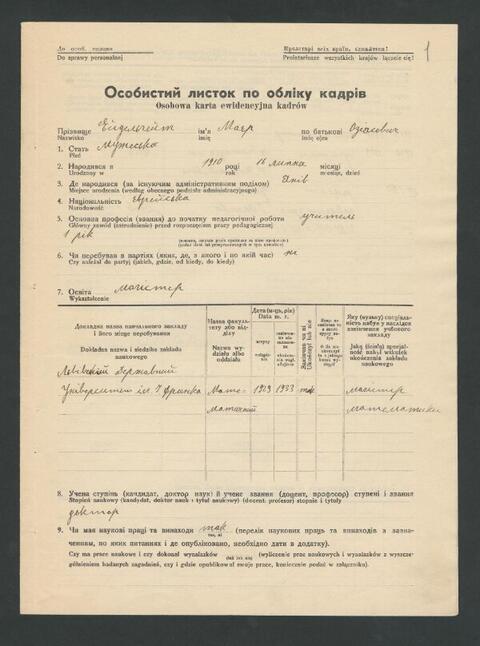 До особ. справи
Пролетарі всіх країн, єднайтеся!
1
Do sprawy personalnej
Proletariusze wszystkich krajów łączcie się!
Особистий листок по обліку кадрів
Osobowa karta ewidencyjna kadrów
Прізвище Ейдельгейт ім'я Маєр по батькові Озіасович
Nazwisko imię imię ojca
1. Стать Мужеська
Płeć
2. Народився 1910 році 16 липня місяці
Urodzony w rok miesiąc, dzień
3. Де народився (за існуючим адміністративним поділом) Янів
Miejsce urodzenia (według obecnego podziału administracyjnego)
4. Національність Єврейська
Narodowość
5. Основна професія (звання) до початку педагогічної роботи учитель
Główny zawód (zatrudnienie) przed rozpoczęciem pracy pedagogicznej
1 рік
6. Чи перебував в партіях (яких, де, з якого і по який час) ні
Czy należał do partyj (jakich, gdzie, od kiedy, do kiedy)
7. Освіта магістер
Wykształcenie
Докладна назва навчального закладу і його місце перебування
Dokładna nazwa i siedziba zakładu naukowego
Назва факультету або відділу
Nazwa wydziału albo oddziału
Дата (м-ць, рік)
Data m. r.
вступу
Закінчив чи ні
Ukończył lub nie
Яку (вузьку) спеціальність набув у наслідок закінчення учбового закладу
Jaką (ścisłą) specjalność nabył wskutek ukończenia zakładu naukowego
Львівський Державний
Університет ім. І Франка Мате- 1929 1933 так Магістер
матичний математики
8. Учена ступінь (кандидат, доктор наук) й учене звання (доцент, професор) ступені і звання
Stopień naukowy (kandydat, doktor nauk i tytuł naukowy) (docent, profesor) stopnie i tytuły
доктор
9. Чи має наукові праці та винаходи так (перелік наукових праць та винаходів з зазначенням, по яких питаннях і де опубліковано, необхідно дати в додатку).
так, ні
Czy ma prace naukowe i czy dokonał wynalazków (wyliczenie prac naukowych i wynalazków z wyszcze-
(tak lub nie)
gólnieniem badanych zagadnień, czy i gdzie opublikował swoje prace, koniecznie podać w załączniku).